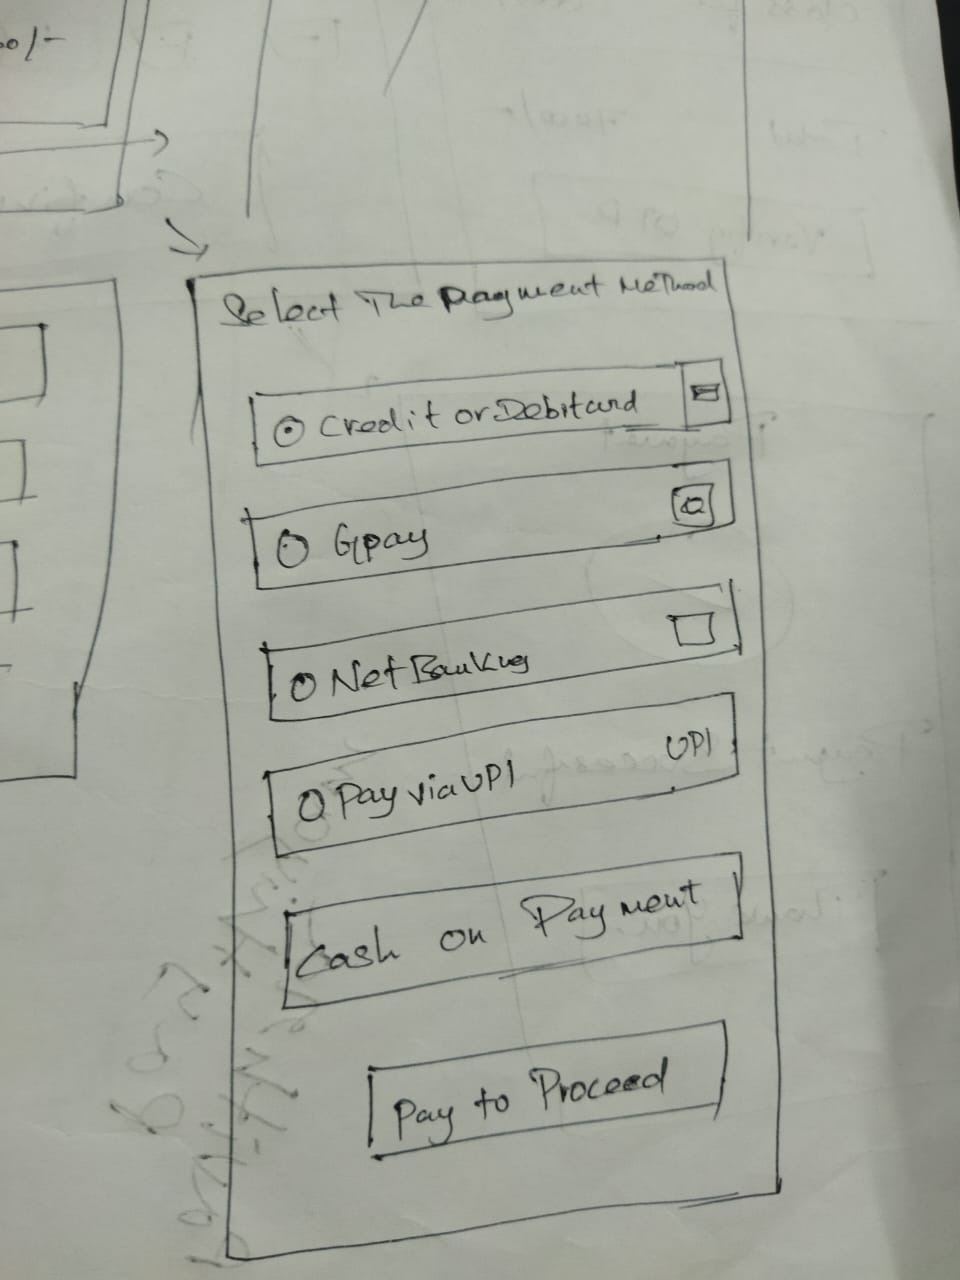 00/-
Select The Payment Method
Credit or Debit card
Gpay
Net Banking
Pay via UPI UPI
Cash on Payment
Pay to Proceed